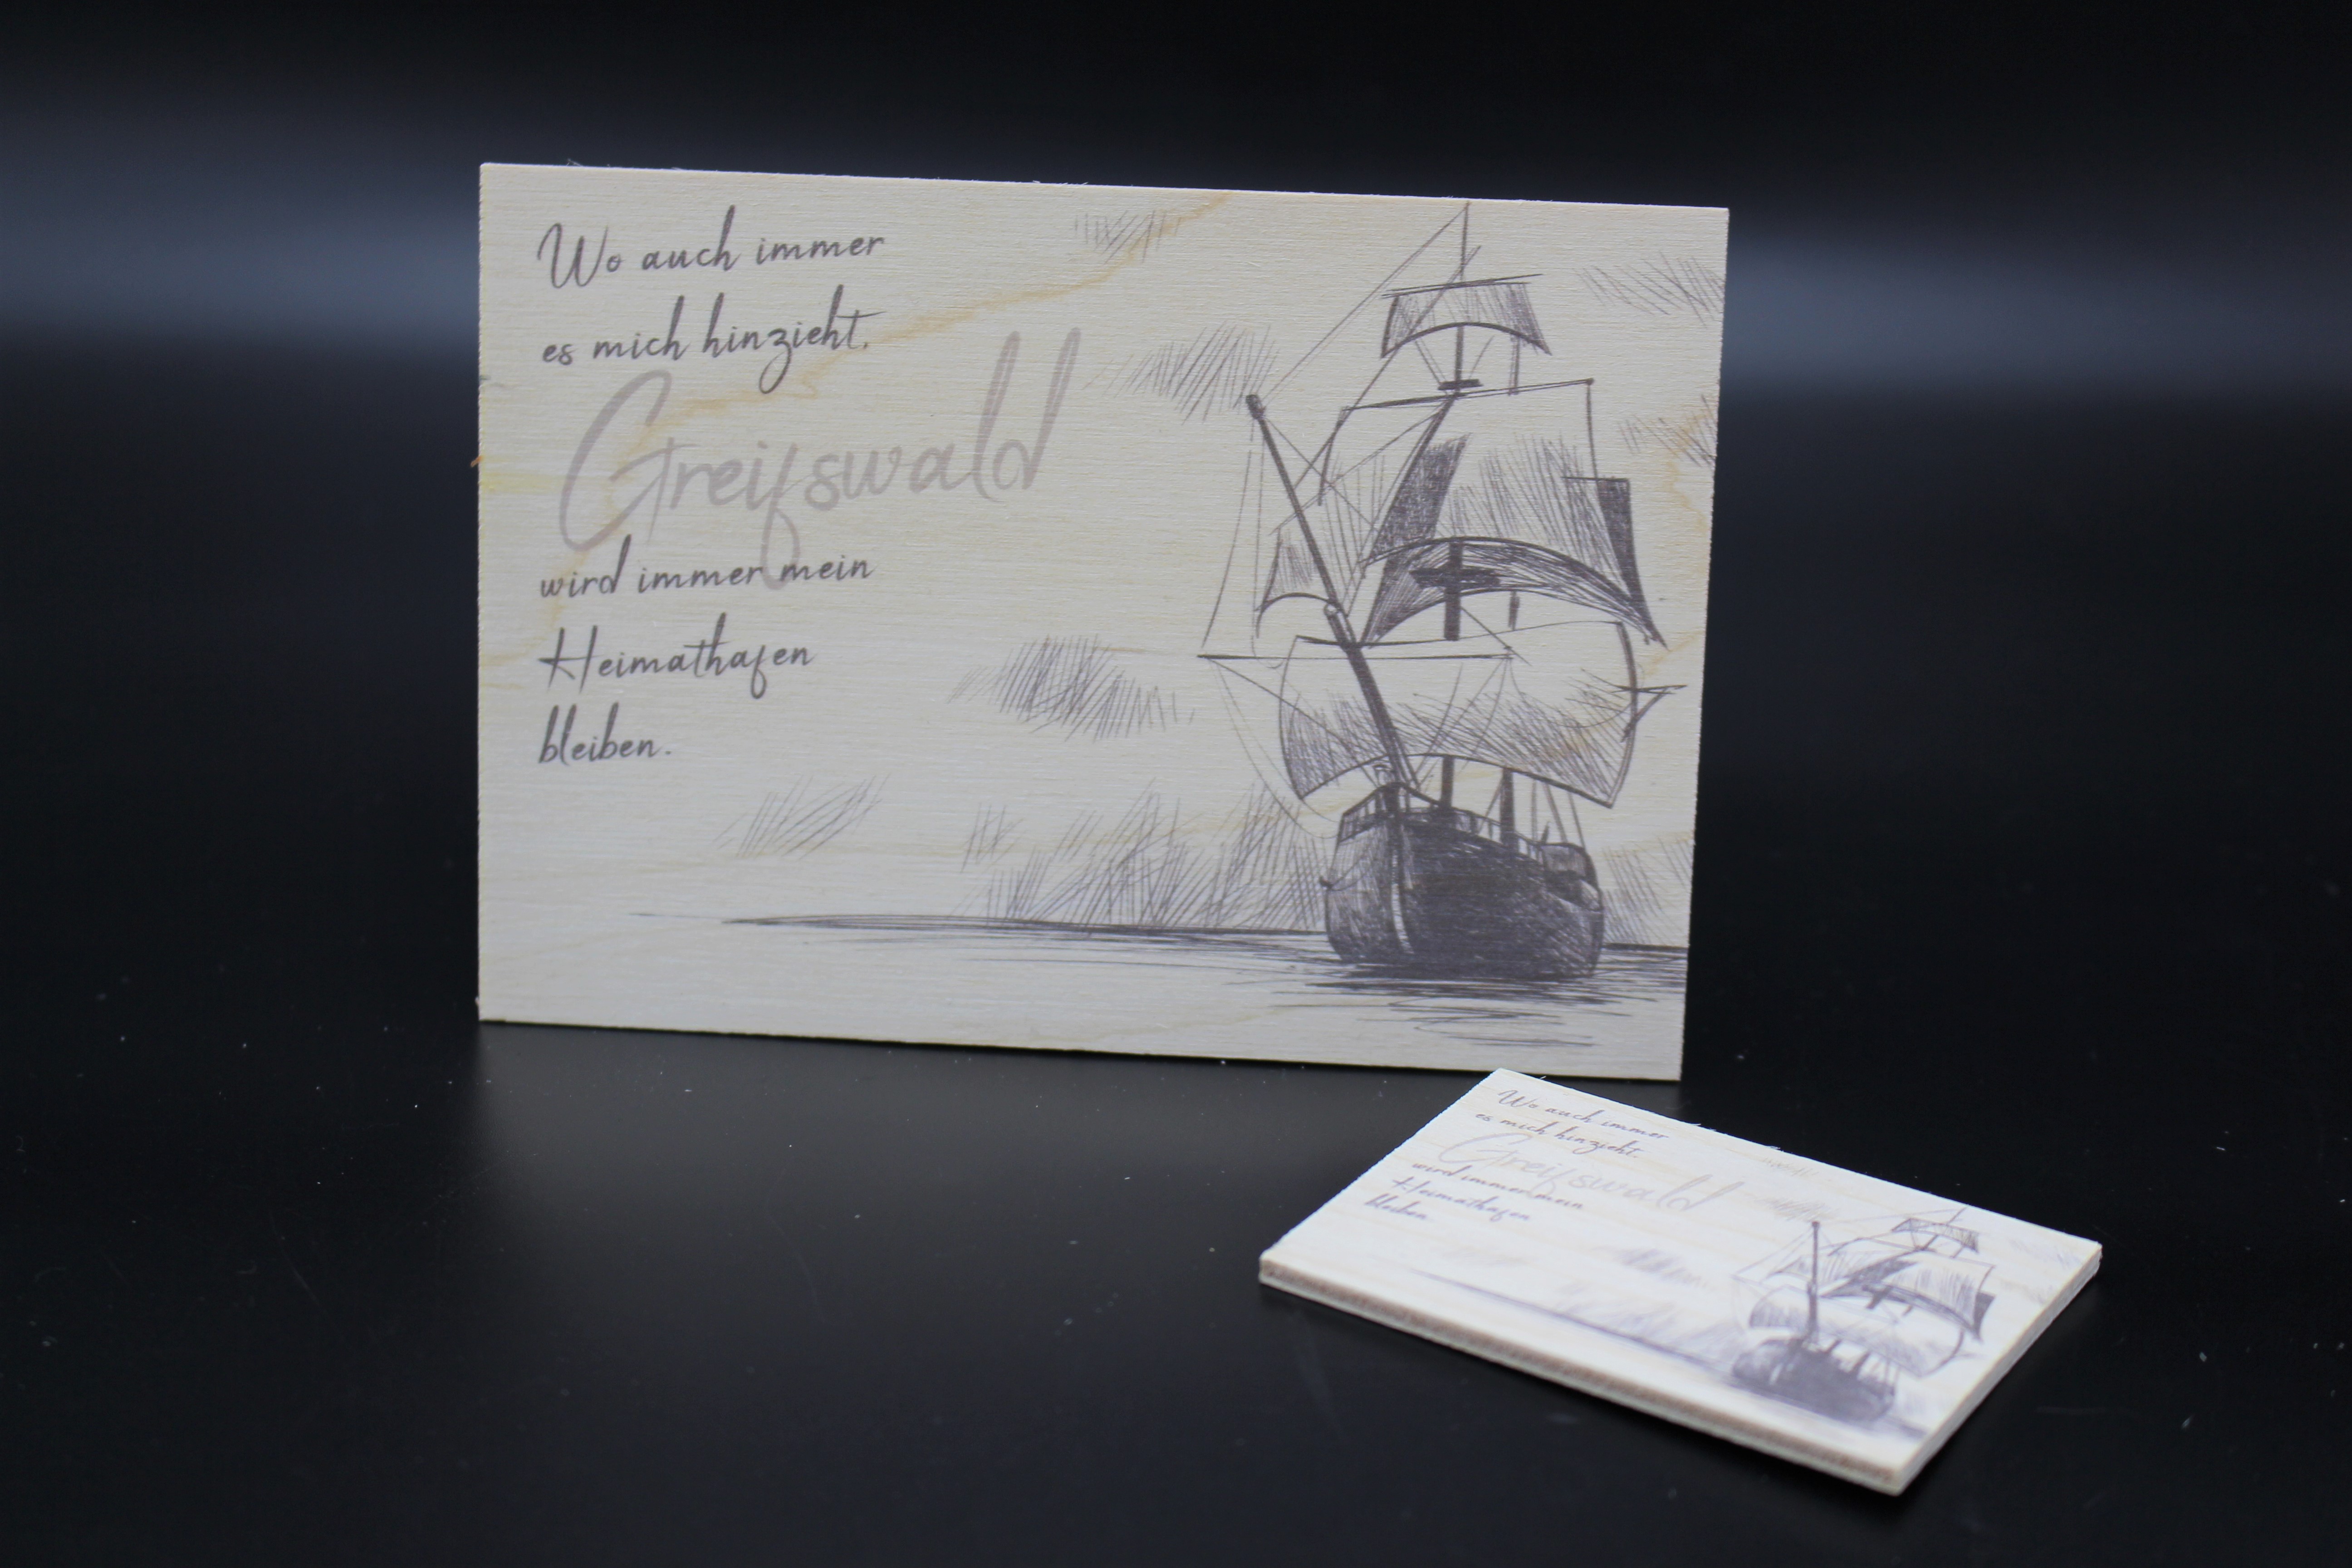 Wo auch immer
es mich hinzieht,
Greifswald
wird immer mein
Heimathafen
bleiben.
Wo auch immer
es mich hinzieht,
Greifswald
wird immer mein
Heimathafen
bleiben.